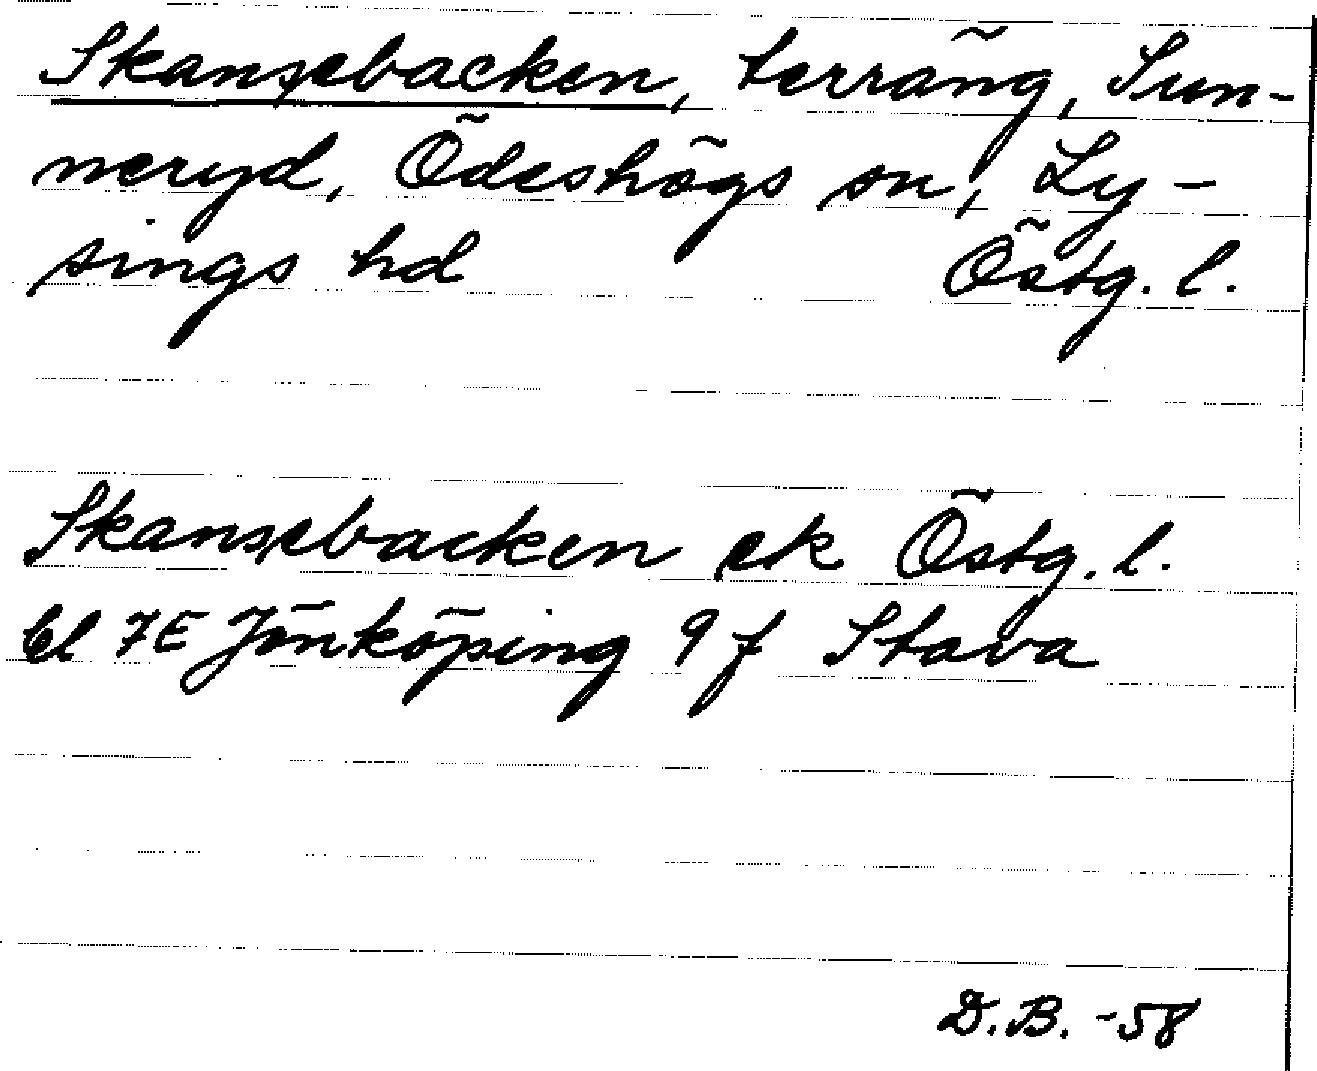 Skansebacken, terräng, Sun-
neryd, Ödeshögs sn, Ly-
sings hd Östg. l.
Skansebacken ek Östg. l.
bl 7E Jönköping 9f Stava
D.B. -58